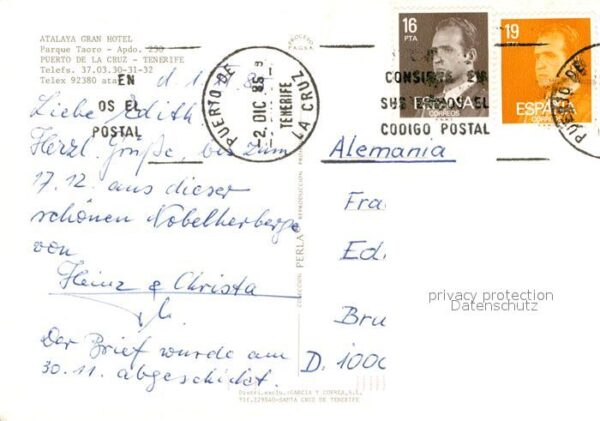 ATALAYA GRAN HOTEL
Parque Taoro - Apdo. 250
PUERTO DE LA CRUZ - TENERIFE
Telefs. 37.03.30-31-32
Telex 92380 ata
EN
OS EL
POSTAL
PUERTO DE LA CRUZ
-2. DIC 86
TENERIFE
16
PTA
ESPAÑA
CORREOS
19
ESPAÑA
CORREOS
CONSIGNE EN
SUS ENVIOS EL
CODIGO POSTAL
PUERTO DE
Liebe Edith
Herzl. Grüße, bis zum
17.12. aus dieser
schönen Nobelherberge
von
Heinz & Christa
Der Brief wurde am
30.11. abgeschickt.
COLECCION PERLA REPRODUCCION
Alemania
Fra
Edi
Bru
D. 1000
privacy protection
Datenschutz
Distrb.exclu.:GARCIA Y CORREA,S.L.
Tlf.229840-SANTA CRUZ DE TENERIFE